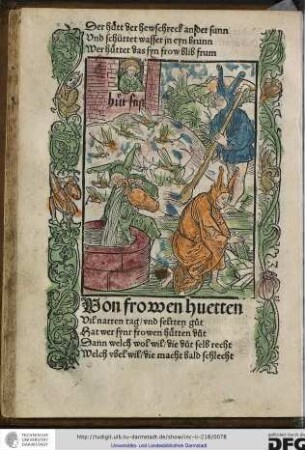 Der hütt der hewschreck an der sunn
Vnd schüttet wasser jn eyn brunn
Wer hüttet das syn frow blib frum
hür fuß
Von frowen huetten
Vil narren tag / vnd seltten güt
Hat wer synr frowen hütten düt
Dann welch wol wil / die düt selb recht
Welch vbel wil / die macht bald schlecht
TECHNISCHE
UNIVERSITÄT
DARMSTADT
http://tudigit.ulb.tu-darmstadt.de/show/inc-ii-218/0078
Universitäts- und Landesbibliothek Darmstadt
DFG